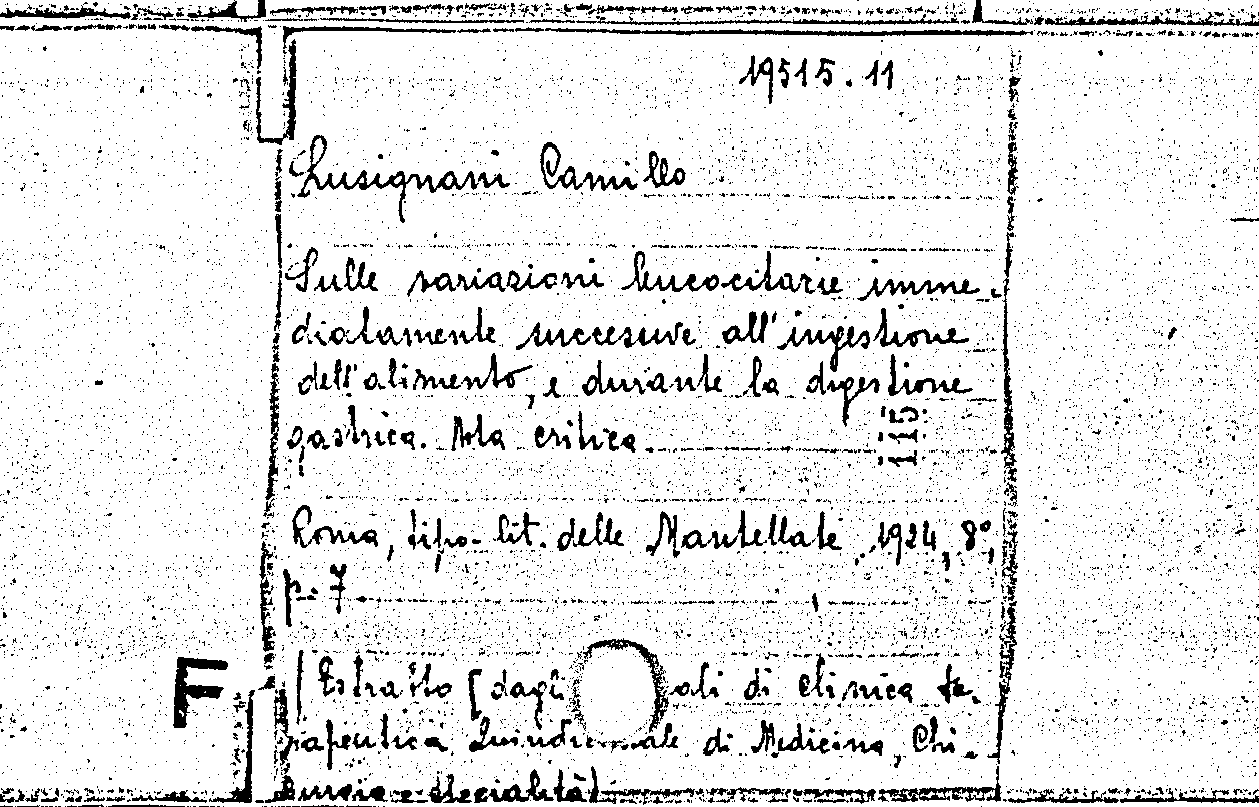 19515.11
Lusignani Camillo
Sulle variazioni leucocitarie imme-
diatamente successive all'ingestione
dell'alimento, e durante la digestione
gastrica. Nota critica.
115
Roma, tipo-lit. delle Mantellate, 1924, 8°,
p. 7
F
(Estratto [dagli ali di clinica te-
rapeutica Quindicinale di Medicina, Chi-
rurgia e specialità)